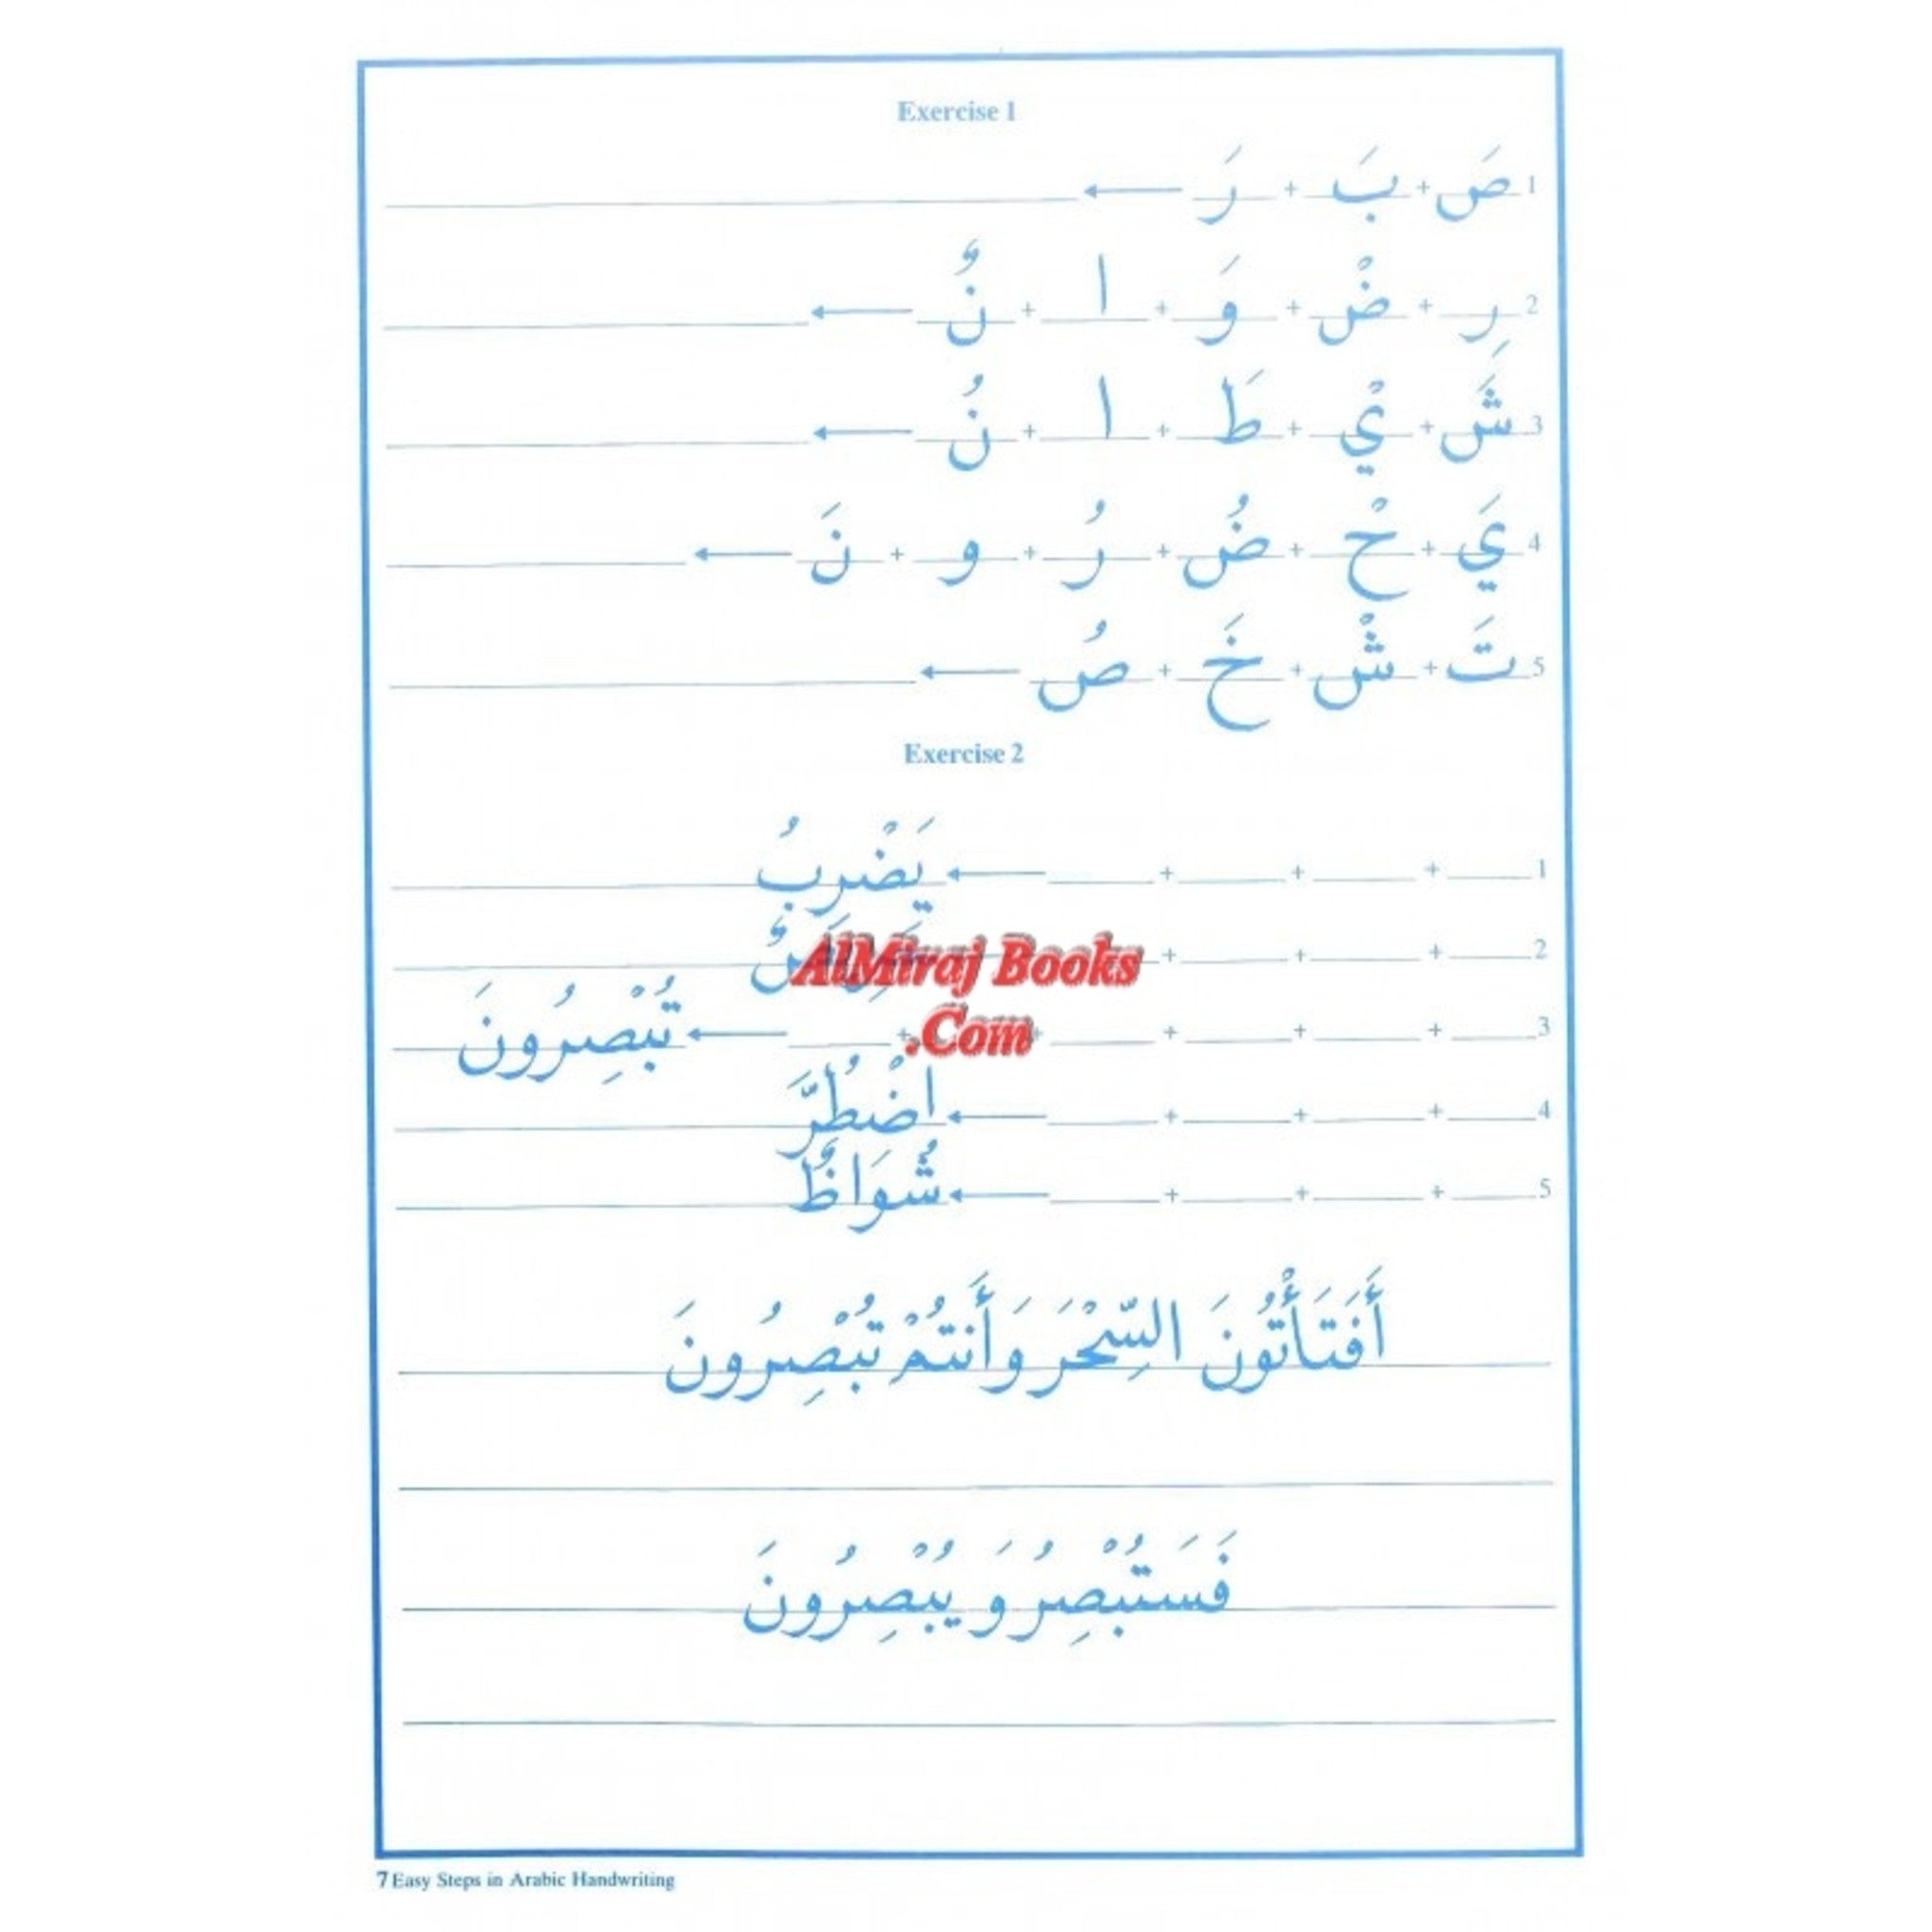 Exercise 1
1 صَ + بَ + رَ ←
2 رِ + ضْ + وَ + ا + نٌ ←
3 شَ + يْ + طَ + ا + نُ ←
4 يَ + حْ + ضُ + رُ + و + نَ ←
5 تَ + شْ + خَ + صُ ←
Exercise 2
1 + + + ← يَضْرِبُ
2 + + +
AlMiraj Books
3 + + + + + ← تُبْصِرُونَ
.Com
4 + + + ← اضْطُرَّ
5 + + + ← شُوَاظٌ
أَفَتَأْتُونَ السِّحْرَ وَأَنتُمْ تُبْصِرُونَ
فَسَتُبْصِرُ وَ يُبْصِرُونَ
7 Easy Steps in Arabic Handwriting